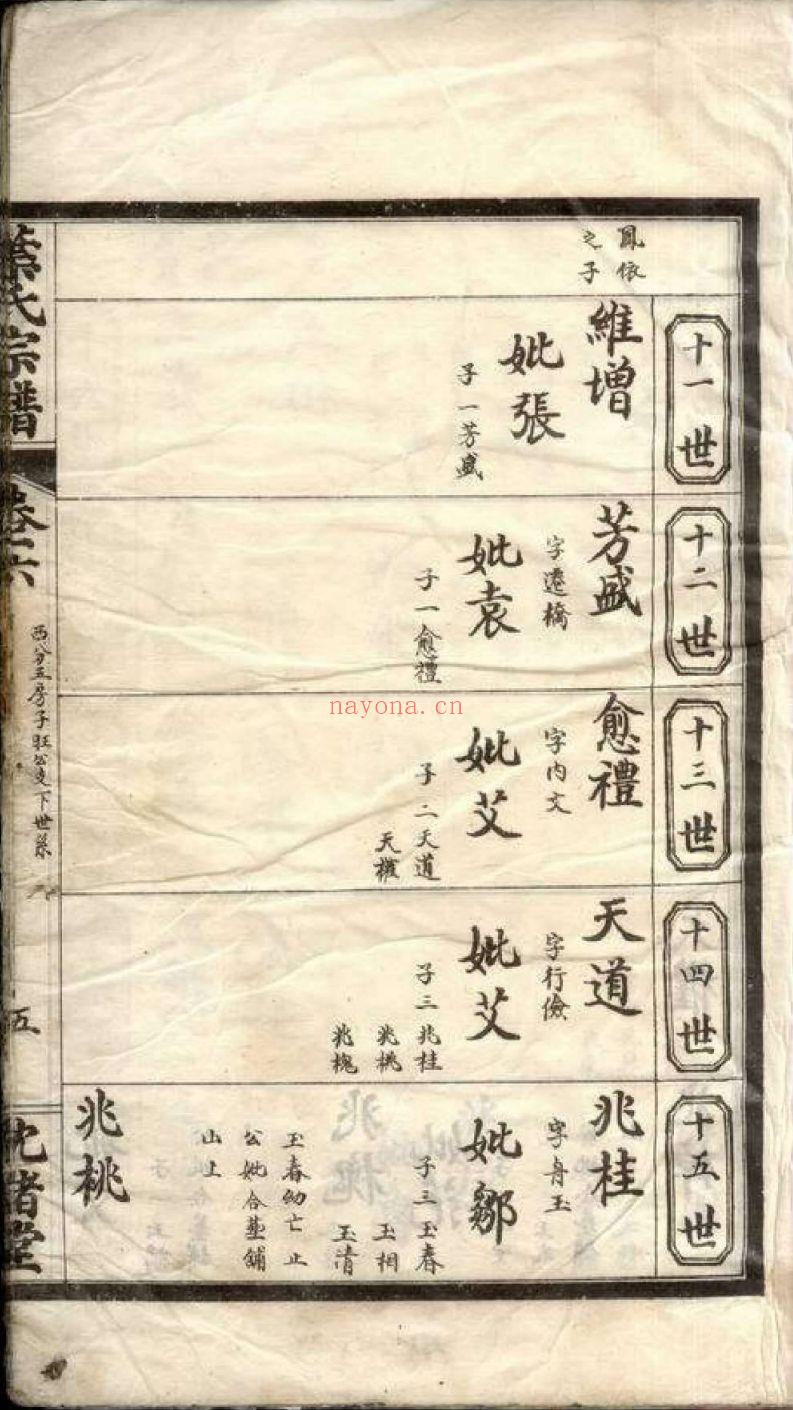 鳳依
之子
十一世
維增
妣張
子一芳盛
十二世
芳盛
字遷橋
妣袁
子一愈禮
十三世
愈禮
字內文
妣艾
子二天道
天權
十四世
天道
字行儉
妣艾
子三兆桂
兆桃
兆槐
十五世
兆桂
字舟玉
妣鄒
子三玉春
玉相
玉清
玉春幼亡止
公妣合塟鋪
山上
兆桃
氏宗譜
卷六
西分五房子旺公支下世系
五
堂
nayona.cn